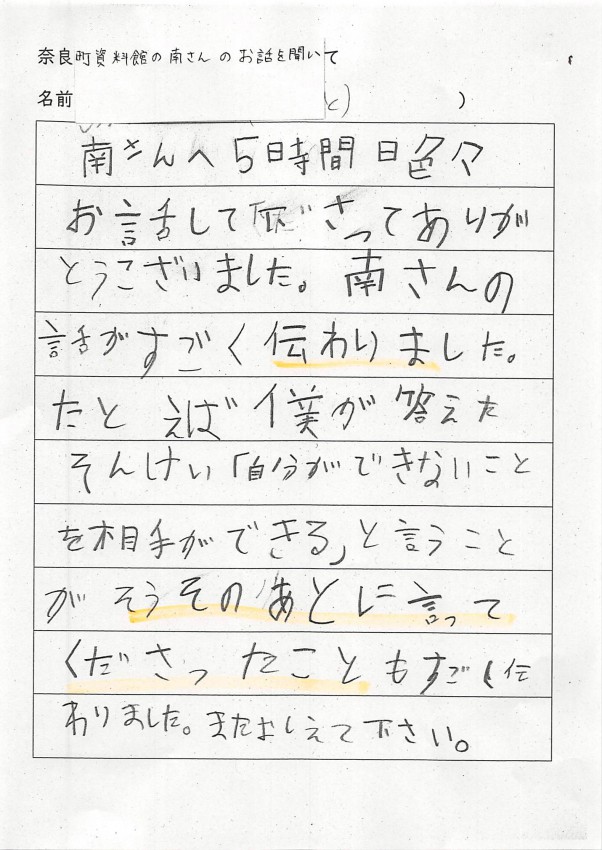 奈良町資料館の南さんのお話を聞いて
名前 と) )
南さんへ5時間目色々
お話して下ださってありが
とうございました。南さんの
話がすごく伝わりました。
たとえば僕が答えた
そんけい「自分ができないこと
を相手ができる」と言うこと
がそうそのあとに言って
くださったこともすごく伝
わりました。またおしえて下さい。